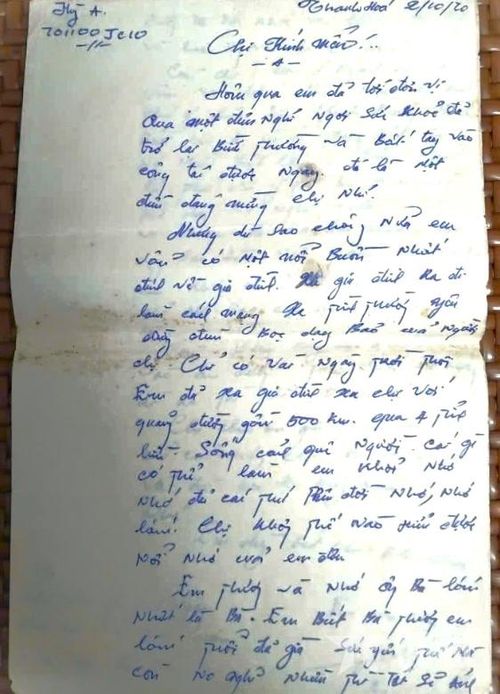 Kỳ A.
701100JC10
Thanh Hoá 2/10/70
Chị Kính mến!..
Hôm qua em đã tới đơn vị
Qua một đêm nghỉ ngơi sức khoẻ đã
trở lại Bình thường và Bắt tay vào
công tác được Ngay. đó là một
điều đáng mừng chị nhỉ.
Nhưng dù sao chăng nữa em
vẫn có một nỗi Buồn Nhất
định về gia đình. Xa gia đình xa đi
làm cách mạng Xa
Bọc dạy Bảo của Người
chị Chỉ có vài Ngày thôi
Em đã xa gia đình xa chị với
quãng đường gần 500 km. qua 4 tỉnh
liền. Sống cảnh quê Người. cái gì
có thể làm em khỏi nhớ
Nhớ đủ cái thứ trên đời Nhớ, Nhớ
lắm! Chị không thế nào hiểu được
Nỗi Nhớ của em đâu
Em thương và Nhớ ông Bà lắm
Nhất là Bà. Em Biết Bà thương em
lắm đã già Sức yếu thế mà
còn lo nghĩ Nhiều thì